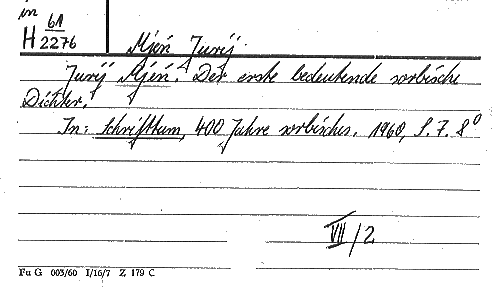 in
H 61/2276
Mjeń Jurij.
Jurij Mjeń. Der erste bedeutende sorbische
Dichter.
In: Schrifttum, 400 Jahre sorbisches. 1960, S. 7. 8°
VII/2
Fu G 003/60 I/16/7 Z 179 C